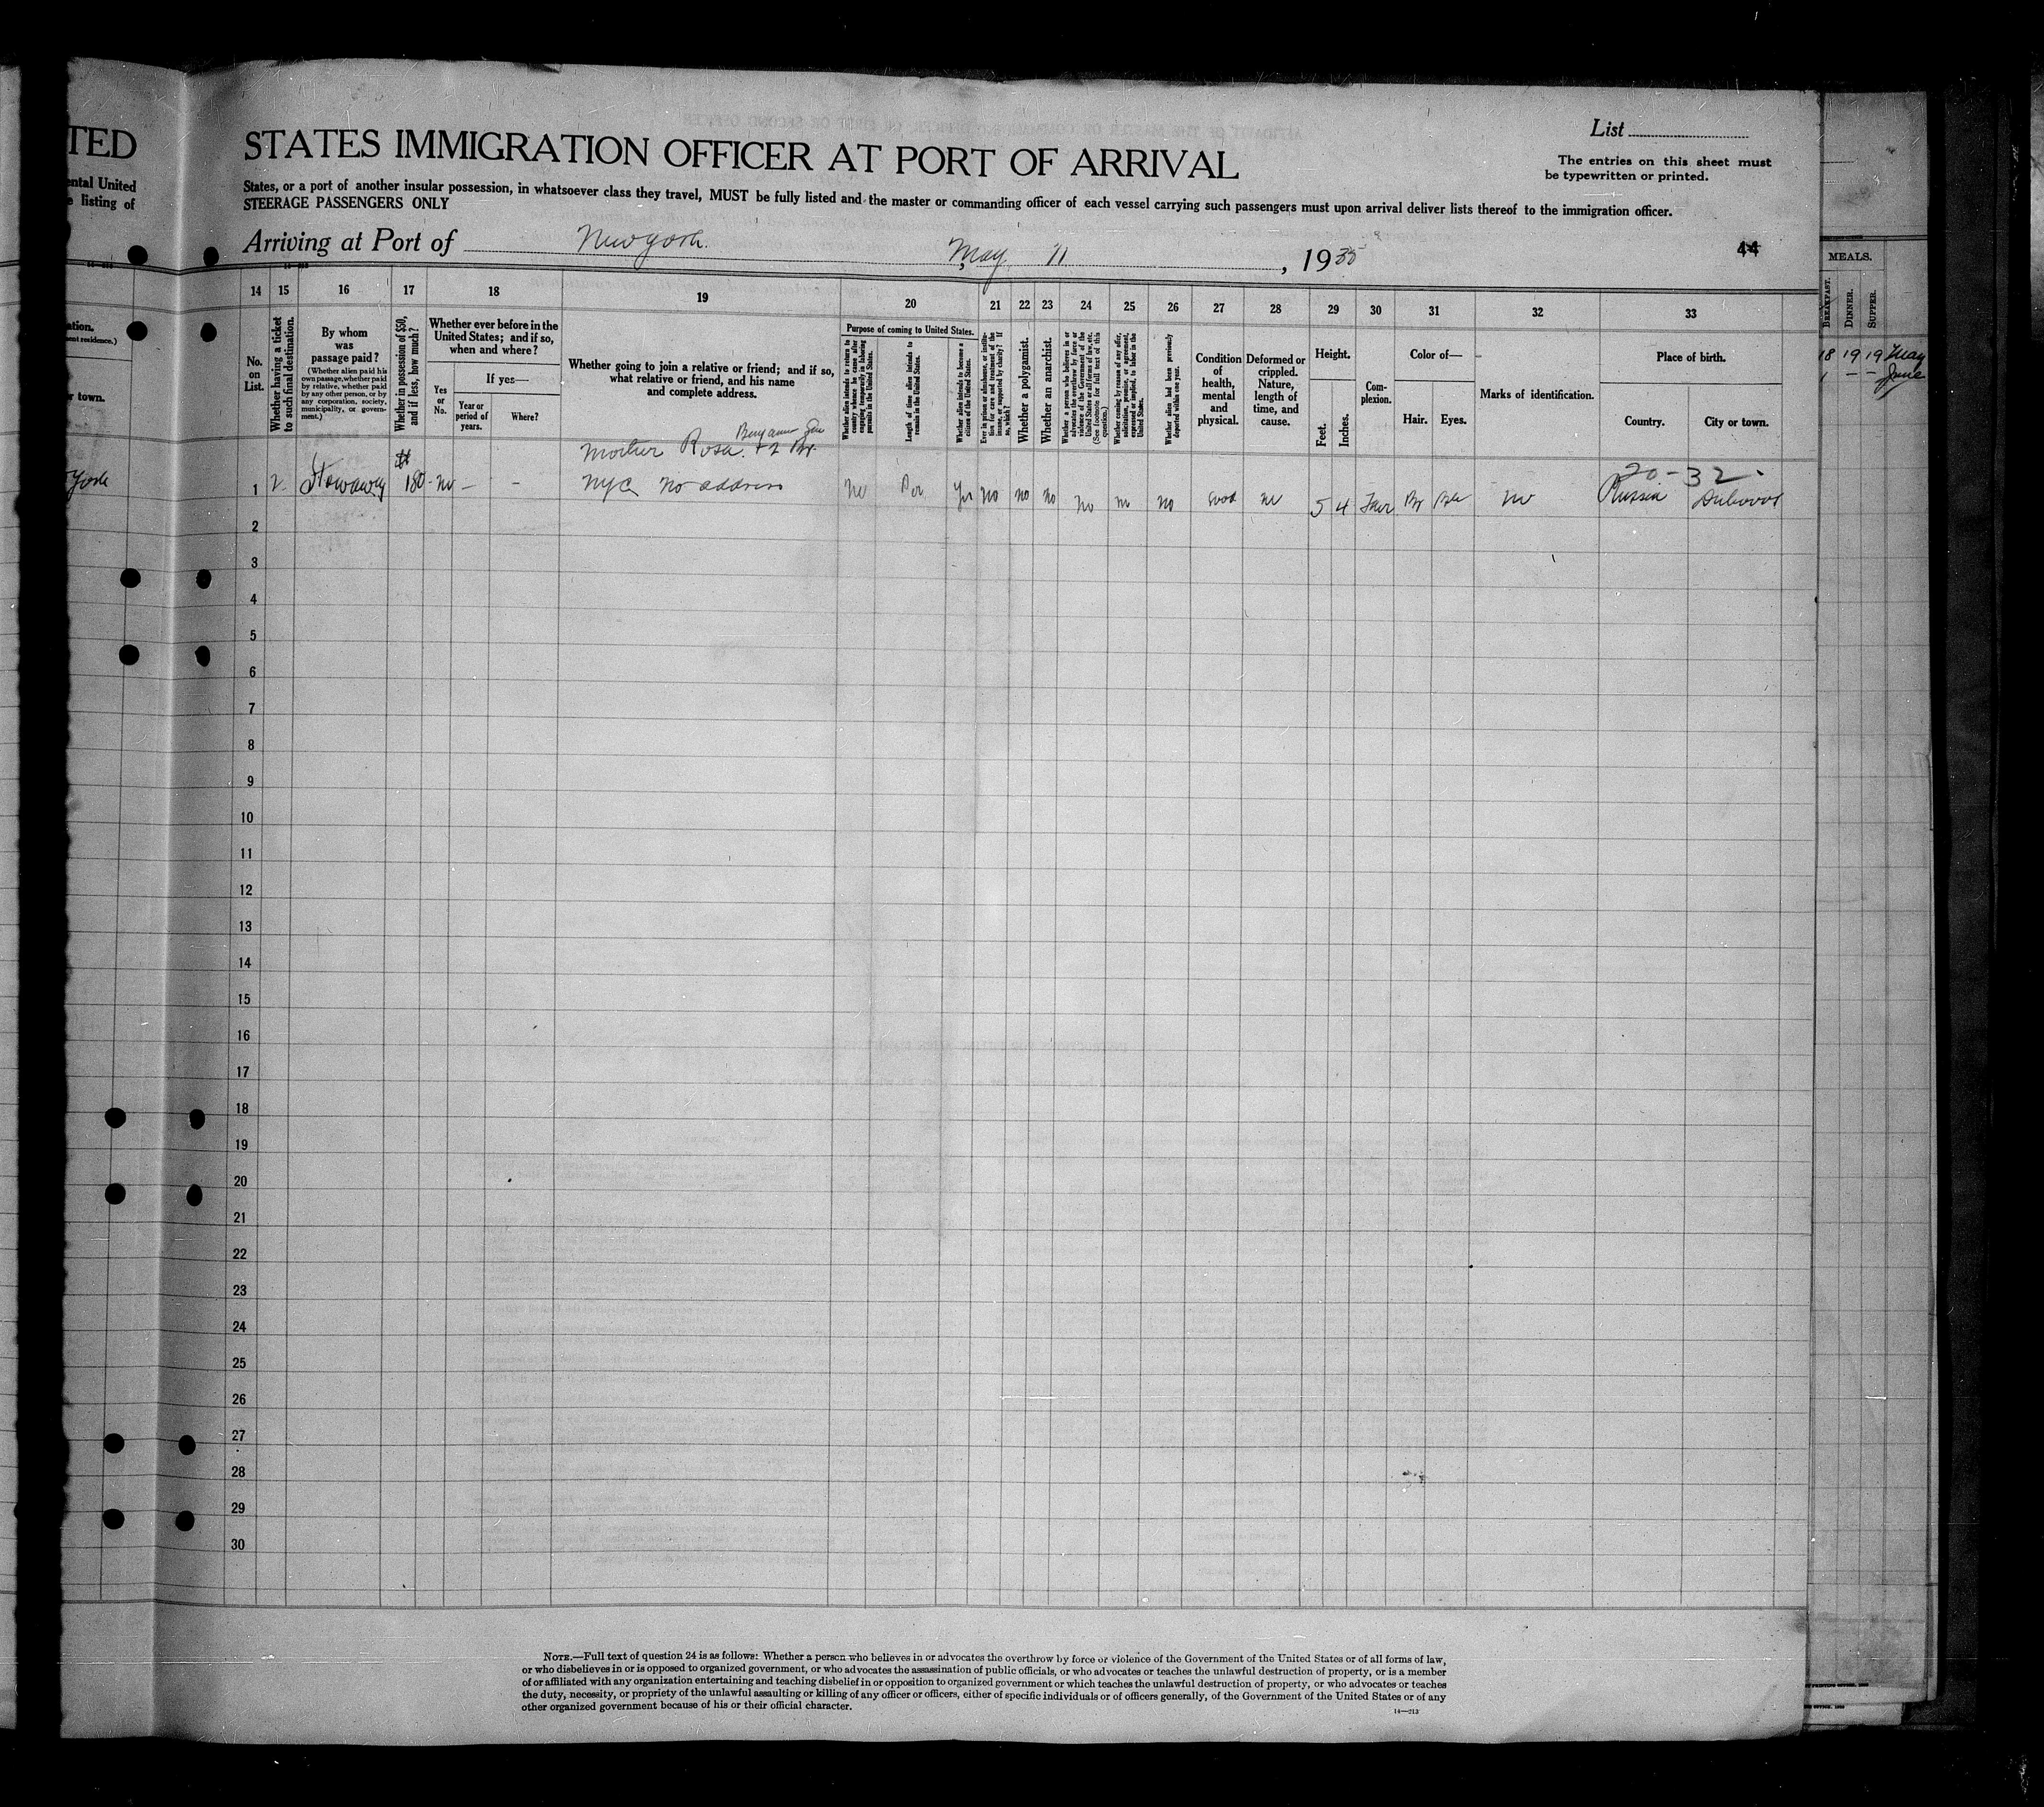 TED
ental United
e listing of
ation.
ent residence.)
r town.
York
STATES IMMIGRATION OFFICER AT PORT OF ARRIVAL
List
The entries on this sheet must
be typewritten or printed.
States, or a port of another insular possession, in whatsoever class they travel, MUST be fully listed and the master or commanding officer of each vessel carrying such passengers must upon arrival deliver lists thereof to the immigration officer.
STEERAGE PASSENGERS ONLY
Arriving at Port of New York. May 11, 1935
44
14 15 16 17 18 19 20 21 22 23 24 25 26 27 28 29 30 31 32 33
No.
on
List.
Whether having a ticket
to such final destination.
By whom
was
passage paid?
(Whether alien paid his
own passage, whether paid
by relative, whether paid
by any other person, or by
any corporation, society,
municipality, or govern-
ment.)
Whether in possession of $50,
and if less, how much?
Whether ever before in the
United States; and if so,
when and where?
Yes
or
No.
If yes—
Year or
period of
years.
Where?
Whether going to join a relative or friend; and if so,
what relative or friend, and his name
and complete address.
Purpose of coming to United States.
Whether alien intends to return to
country whence he came after
engaging temporarily in laboring
pursuits in the United States.
Length of time alien intends to
remain in the United States.
Whether alien intends to become a
citizen of the United States.
Ever in prison or almshouse, or institu-
tion for care and treatment of the
insane, or supported by charity? If
so, which?
Whether a polygamist.
Whether an anarchist.
Whether a person who believes in or
advocates the overthrow by force or
violence of the Government of the
United States or all forms of law, etc.
(See footnote for full text of this
question.)
Whether coming by reason of any offer,
solicitation, promise, or agreement,
expressed or implied, to labor in the
United States.
Whether alien had been previously
deported within one year.
Condition
of
health,
mental
and
physical.
Deformed or
crippled.
Nature,
length of
time, and
cause.
Height.
Feet.
Inches.
Com-
plexion.
Color of—
Hair.
Eyes.
Marks of identification.
Place of birth.
Country.
City or town.
Mother Rosa. + 2 Br.
20-32
1 Stowaway $180 no — — NYC no address no Per Yes no no no no no no Good no 5 4 Fair Br no Russia
2
3
4
5
6
7
8
9
10
11
12
13
14
15
16
17
18
19
20
21
22
23
24
25
26
27
28
29
30
NOTE.—Full text of question 24 is as follows: Whether a person who believes in or advocates the overthrow by force or violence of the Government of the United States or of all forms of law,
or who disbelieves in or is opposed to organized government, or who advocates the assassination of public officials, or who advocates or teaches the unlawful destruction of property, or is a member
of or affiliated with any organization entertaining and teaching disbelief in or opposition to organized government or which teaches the unlawful destruction of property, or who advocates or teaches
the duty, necessity, or propriety of the unlawful assaulting or killing of any officer or officers, either of specific individuals or of officers generally, of the Government of the United States or of any
other organized government because of his or their official character.
14—213
MEALS.
BREAKFAST.
DINNER.
SUPPER.
18 19 19 May
1 — — June